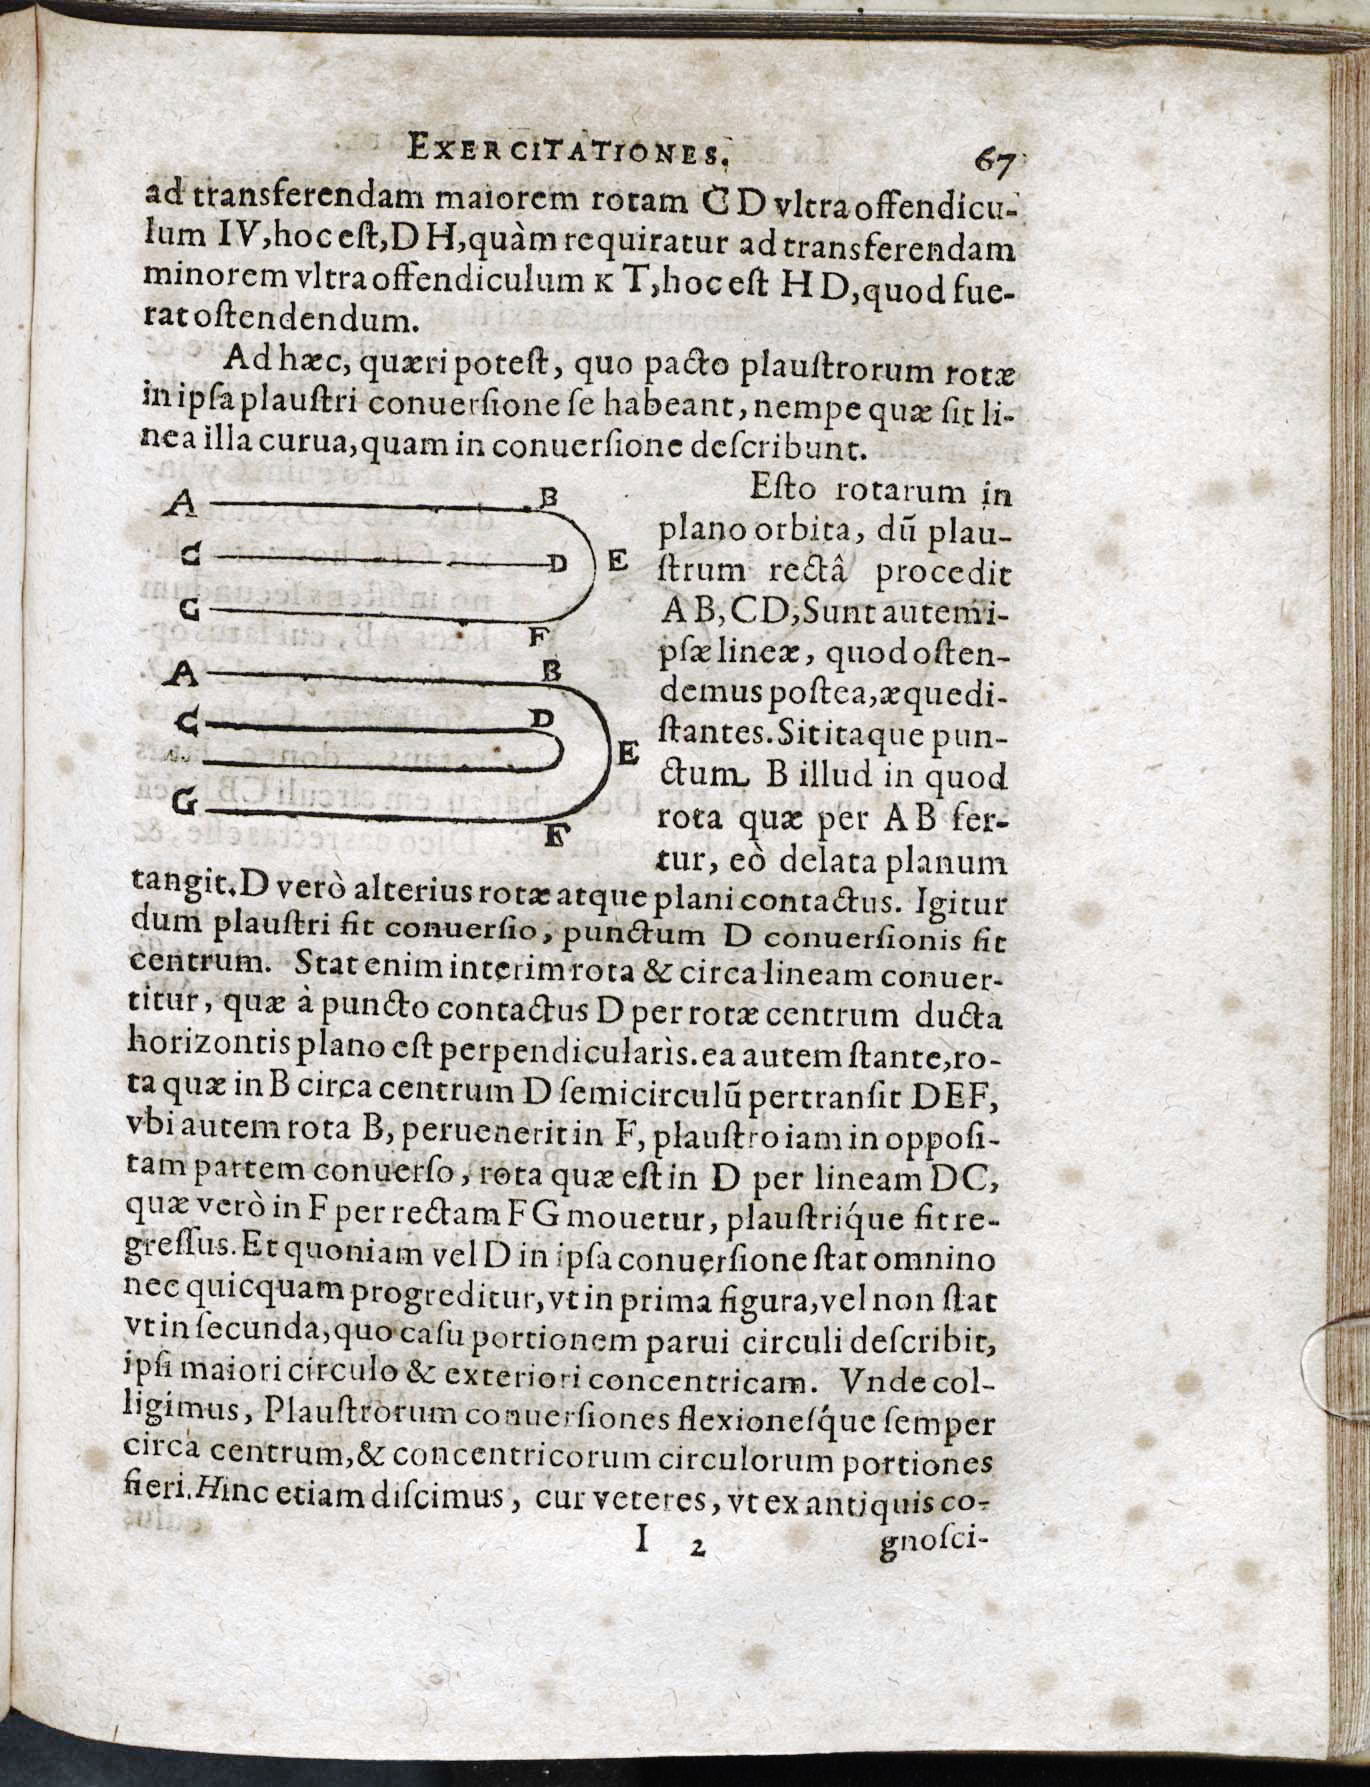 EXERCITATIONES. 67
ad transferendam maiorem rotam C D vltra offendicu-
lum IV, hoc eſt, D H, quàm requiratur ad transferendam
minorem vltra offendiculum K T, hoc eſt H D, quod fue-
rat oſtendendum.
Ad hæc, quæri poteſt, quo pacto plauſtrorum rotæ
in ipſa plauſtri conuerſione ſe habeant, nempe quæ ſit li-
nea illa curua, quam in conuerſione deſcribunt.
A B
C D E
G F
A B
C D
E
G F
Eſto rotarum in
plano orbita, dũ plau-
ſtrum rectâ procedit
A B, C D, Sunt autem i-
pſæ lineæ, quod oſten-
demus poſtea, æquedi-
ſtantes. Sit itaque pun-
ctum B illud in quod
rota quæ per A B fer-
tur, eò delata planum
tangit. D verò alterius rotæ atque plani contactus. Igitur
dum plauſtri fit conuerſio, punctum D conuerſionis fit
centrum. Stat enim interim rota & circa lineam conuer-
titur, quæ à puncto contactus D per rotæ centrum ducta
horizontis plano eſt perpendicularis. ea autem ſtante, ro-
ta quæ in B circa centrum D ſemicirculũ pertranſit DEF,
vbi autem rota B, peruenerit in F, plauſtro iam in oppoſi-
tam partem conuerſo, rota quæ eſt in D per lineam DC,
quæ verò in F per rectam F G mouetur, plauſtriq́ue fit re-
greſſus. Et quoniam vel D in ipſa conuerſione ſtat omnino
nec quicquam progreditur, vt in prima figura, vel non ſtat
vt in ſecunda, quo caſu portionem parui circuli deſcribit,
ipſi maiori circulo & exteriori concentricam. Vnde col-
ligimus, Plauſtrorum conuerſiones flexioneſq́ue ſemper
circa centrum, & concentricorum circulorum portiones
fieri. Hinc etiam diſcimus, cur veteres, vt ex antiquis co-
I 2 gnoſci-